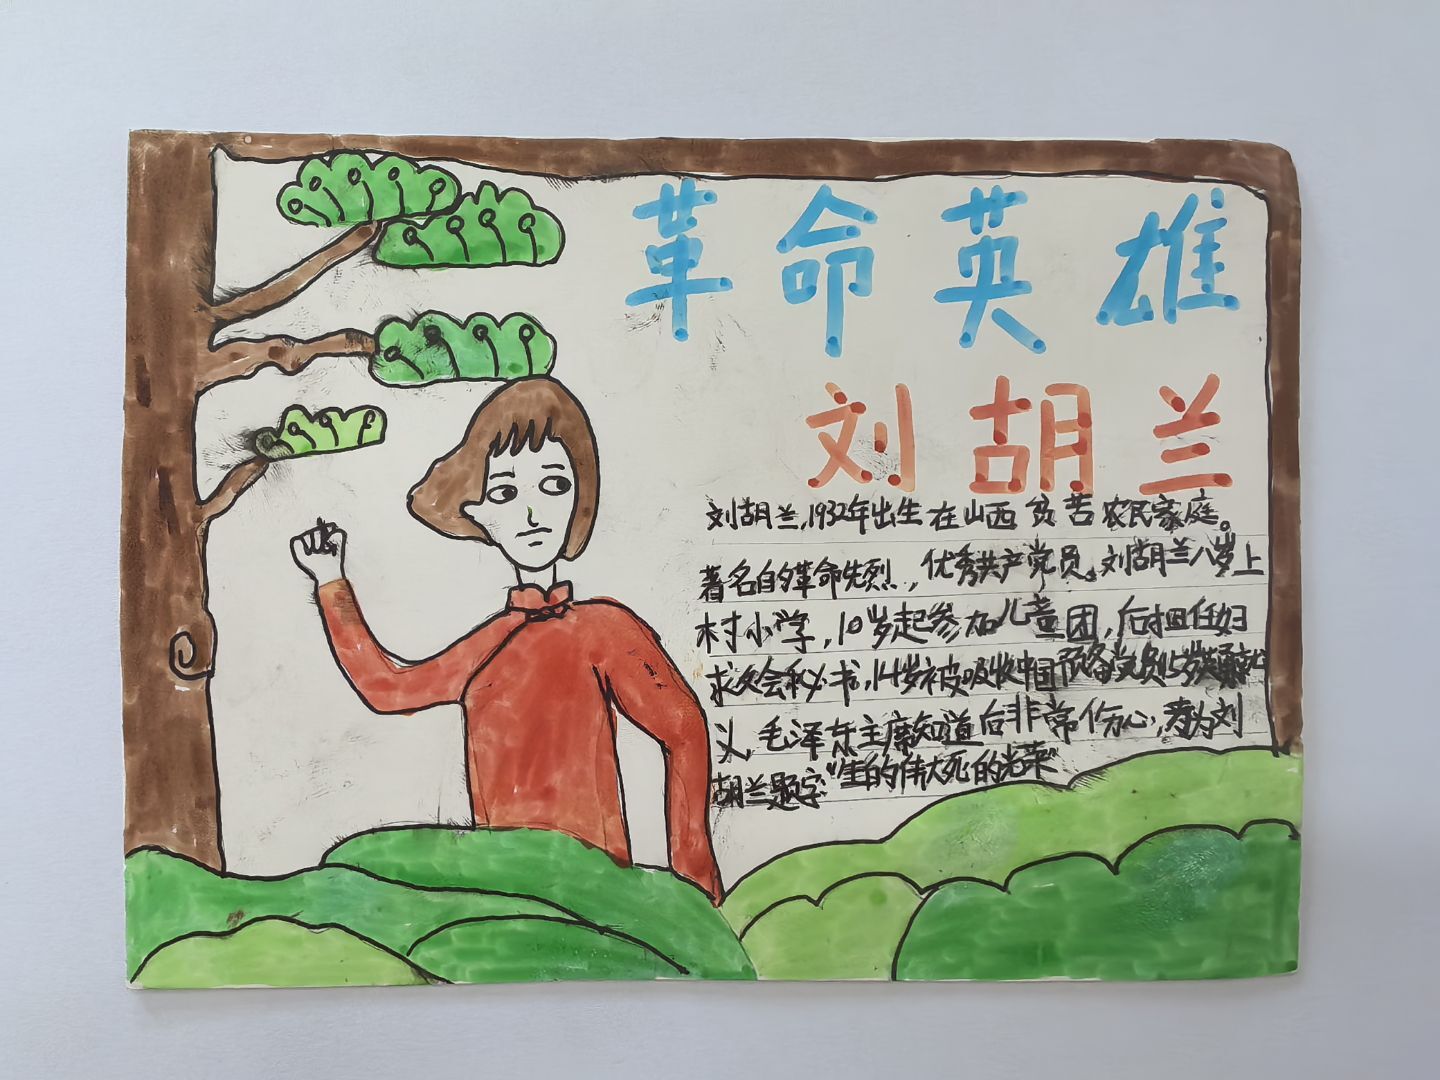 革命英雄
刘胡兰
刘胡兰,1932年出生在山西贫苦农民家庭。
著名的革命先烈,优秀共产党员。刘胡兰八岁上
村小学,10岁起参加儿童团,后担任妇
求久会秘书,14岁被吸收中国预备党员15岁英勇就
义,毛泽东主席知道后非常伤心,为刘
胡兰题字“生的伟大死的光荣”